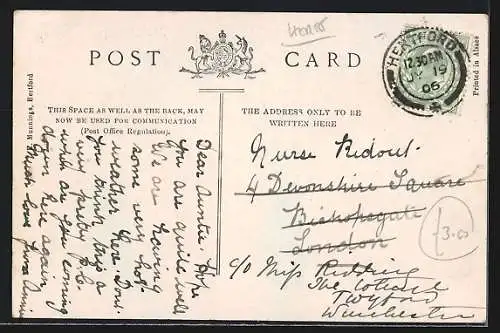 POST CARD
HERTFORD
12.30 PM
JY 19
06
Printed in Alsace
Munnings, Hertford
THIS SPACE AS WELL AS THE BACK, MAY
NOW BE USED FOR COMMUNICATION
(Post Office Regulation).
THE ADDRESS ONLY TO BE
WRITTEN HERE
Dear Auntie. Hope
you are quite well
We are having
some very hot
weather here Dont
you think this a
very pretty p.c.
when are you coming
down here again
Much love from
Nurse Ridout
4 Devonshire Square
Bishopsgate
London
c/o Miss Ridding
The
Twyford
Winchester
£3.00